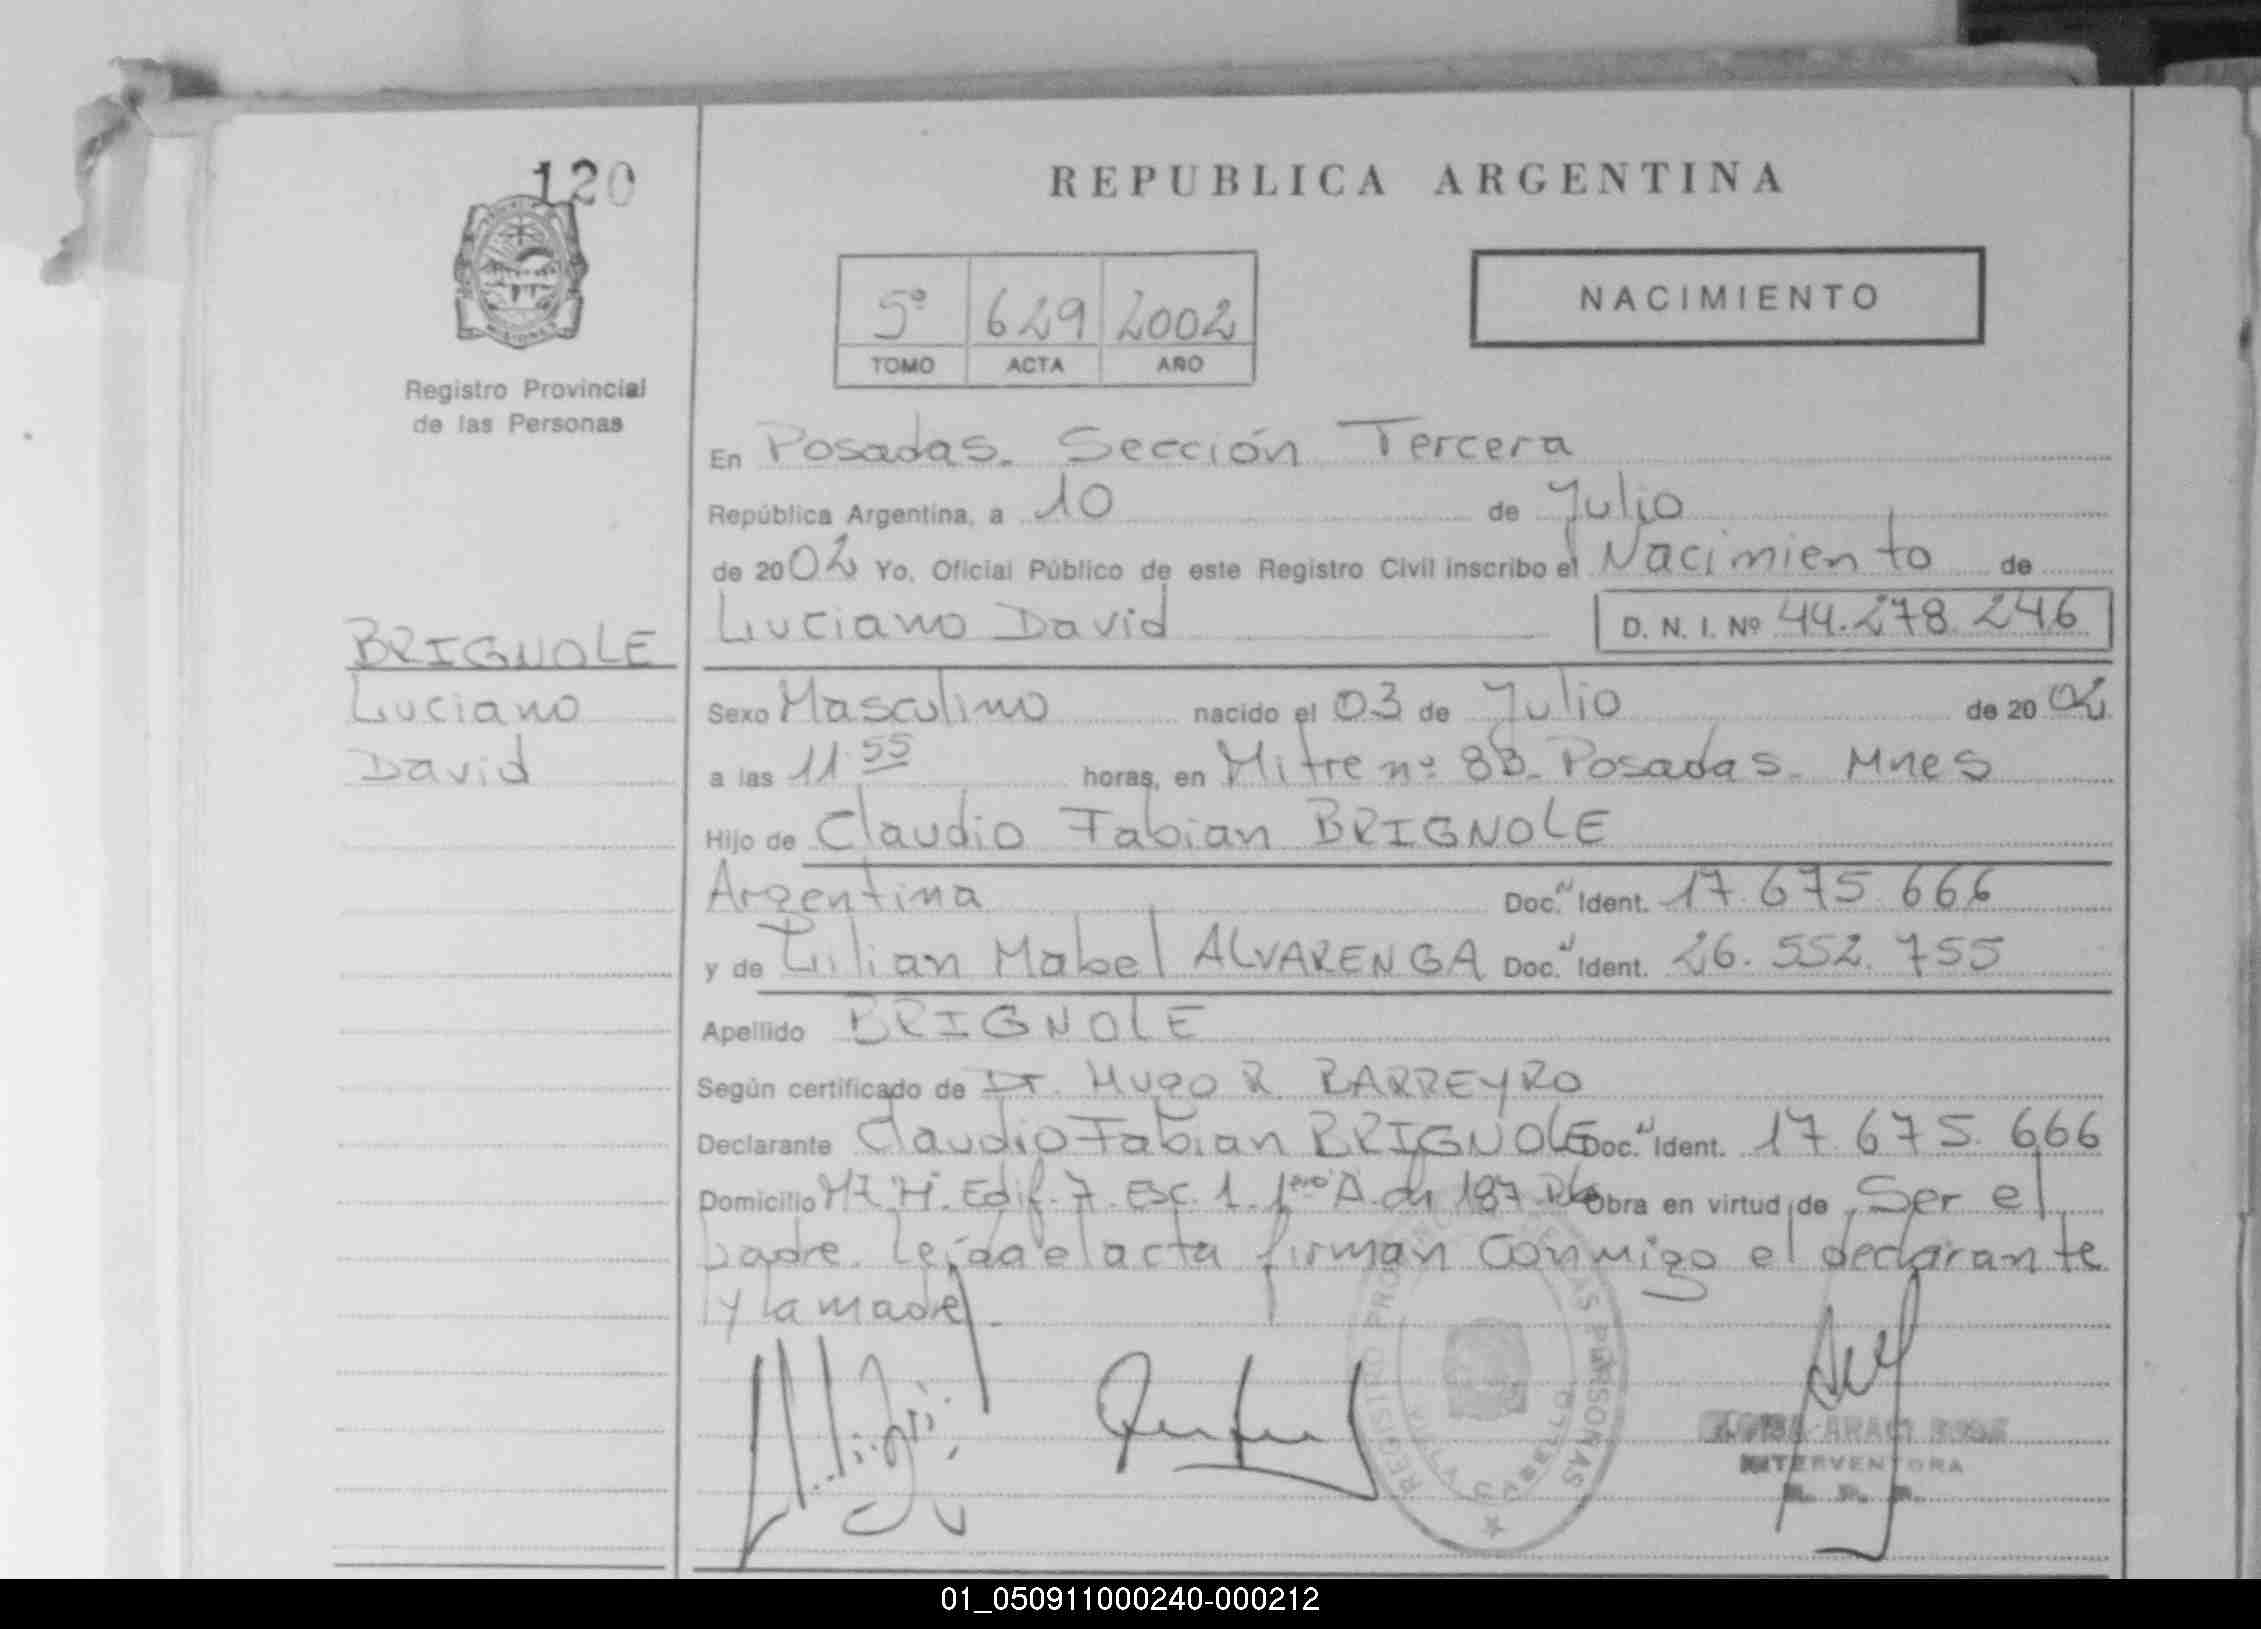 120
Registro Provincial
de las Personas
BRIGNOLE
Luciano
David
REPUBLICA ARGENTINA
5º 629 2002
TOMO ACTA AÑO
NACIMIENTO
En Posadas. Sección Tercera
República Argentina, a 10 de Julio
de 2002 Yo, Oficial Público de este Registro Civil inscribo el Nacimiento de
Luciano David D. N. I. Nº 44.278.246
Sexo Masculino nacido el 03 de Julio de 2002
a las 11.55 horas, en Mitre nº 83. Posadas. Mnes
Hijo de Claudio Fabian BRIGNOLE
Argentina Doc. Ident. 17.675.666
y de Lilian Mabel ALVARENGA Doc. Ident. 26.552.755
Apellido BRIGNOLE
Según certificado de Dr. Hugo R. BARREYRO
Declarante Claudio Fabian BRIGNOLE Doc. Ident. 17.675.666
Domicilio Mz "H". Edif. 7. Esc. 1. 1ero A. ch 187 Obra en virtud de Ser el
padre. Leída el acta firman conmigo el declarante
y la madre.
REGISTRO PROVINCIAL DE LAS PERSONAS
VILLA CABELLO
ARACI
INTERVENTORA
01_050911000240-000212